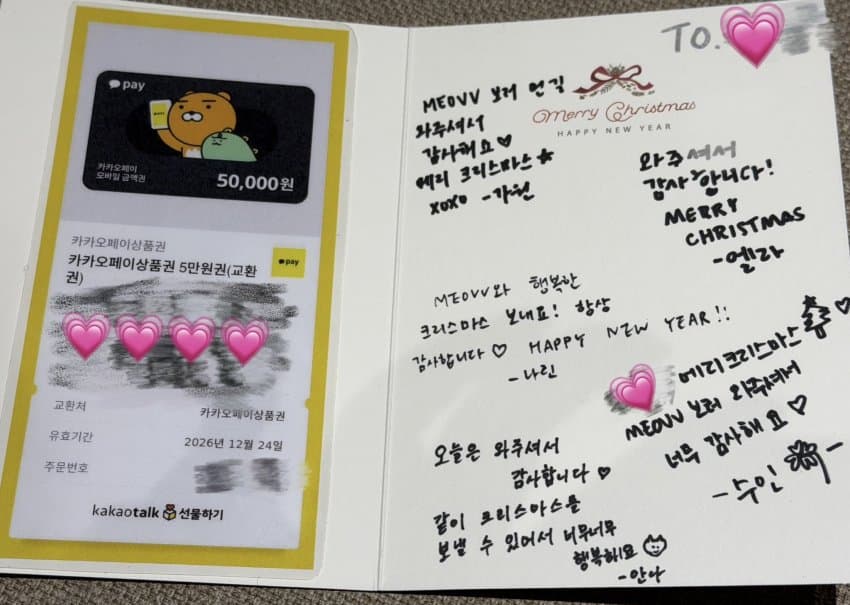 pay
카카오페이
모바일 금액권
50,000원
카카오페이상품권
카카오페이상품권 5만원권(교환
권)
pay
교환처 카카오페이상품권
유효기간 2026년 12월 24일
주문번호
kakaotalk 선물하기
TO.
Merry Christmas
HAPPY NEW YEAR
MEOVV 보러 언킥
와주셔서
감사해요♡
메리 크리스마스★
xoxo -가원
와주셔서
감사합니다!
MERRY
CHRISTMAS
-엘라
MEOVV와 행복한
크리스마스 보내요! 항상
감사합니다♡ HAPPY NEW YEAR!!
-나린
메리크리스마스
MEOVV 보러 와주셔서
너무 감사해요♡
-수인-
오늘은 와주셔서
감사합니다♡
같이 크리스마스를
보낼 수 있어서 너무너무
행복해요
-안나